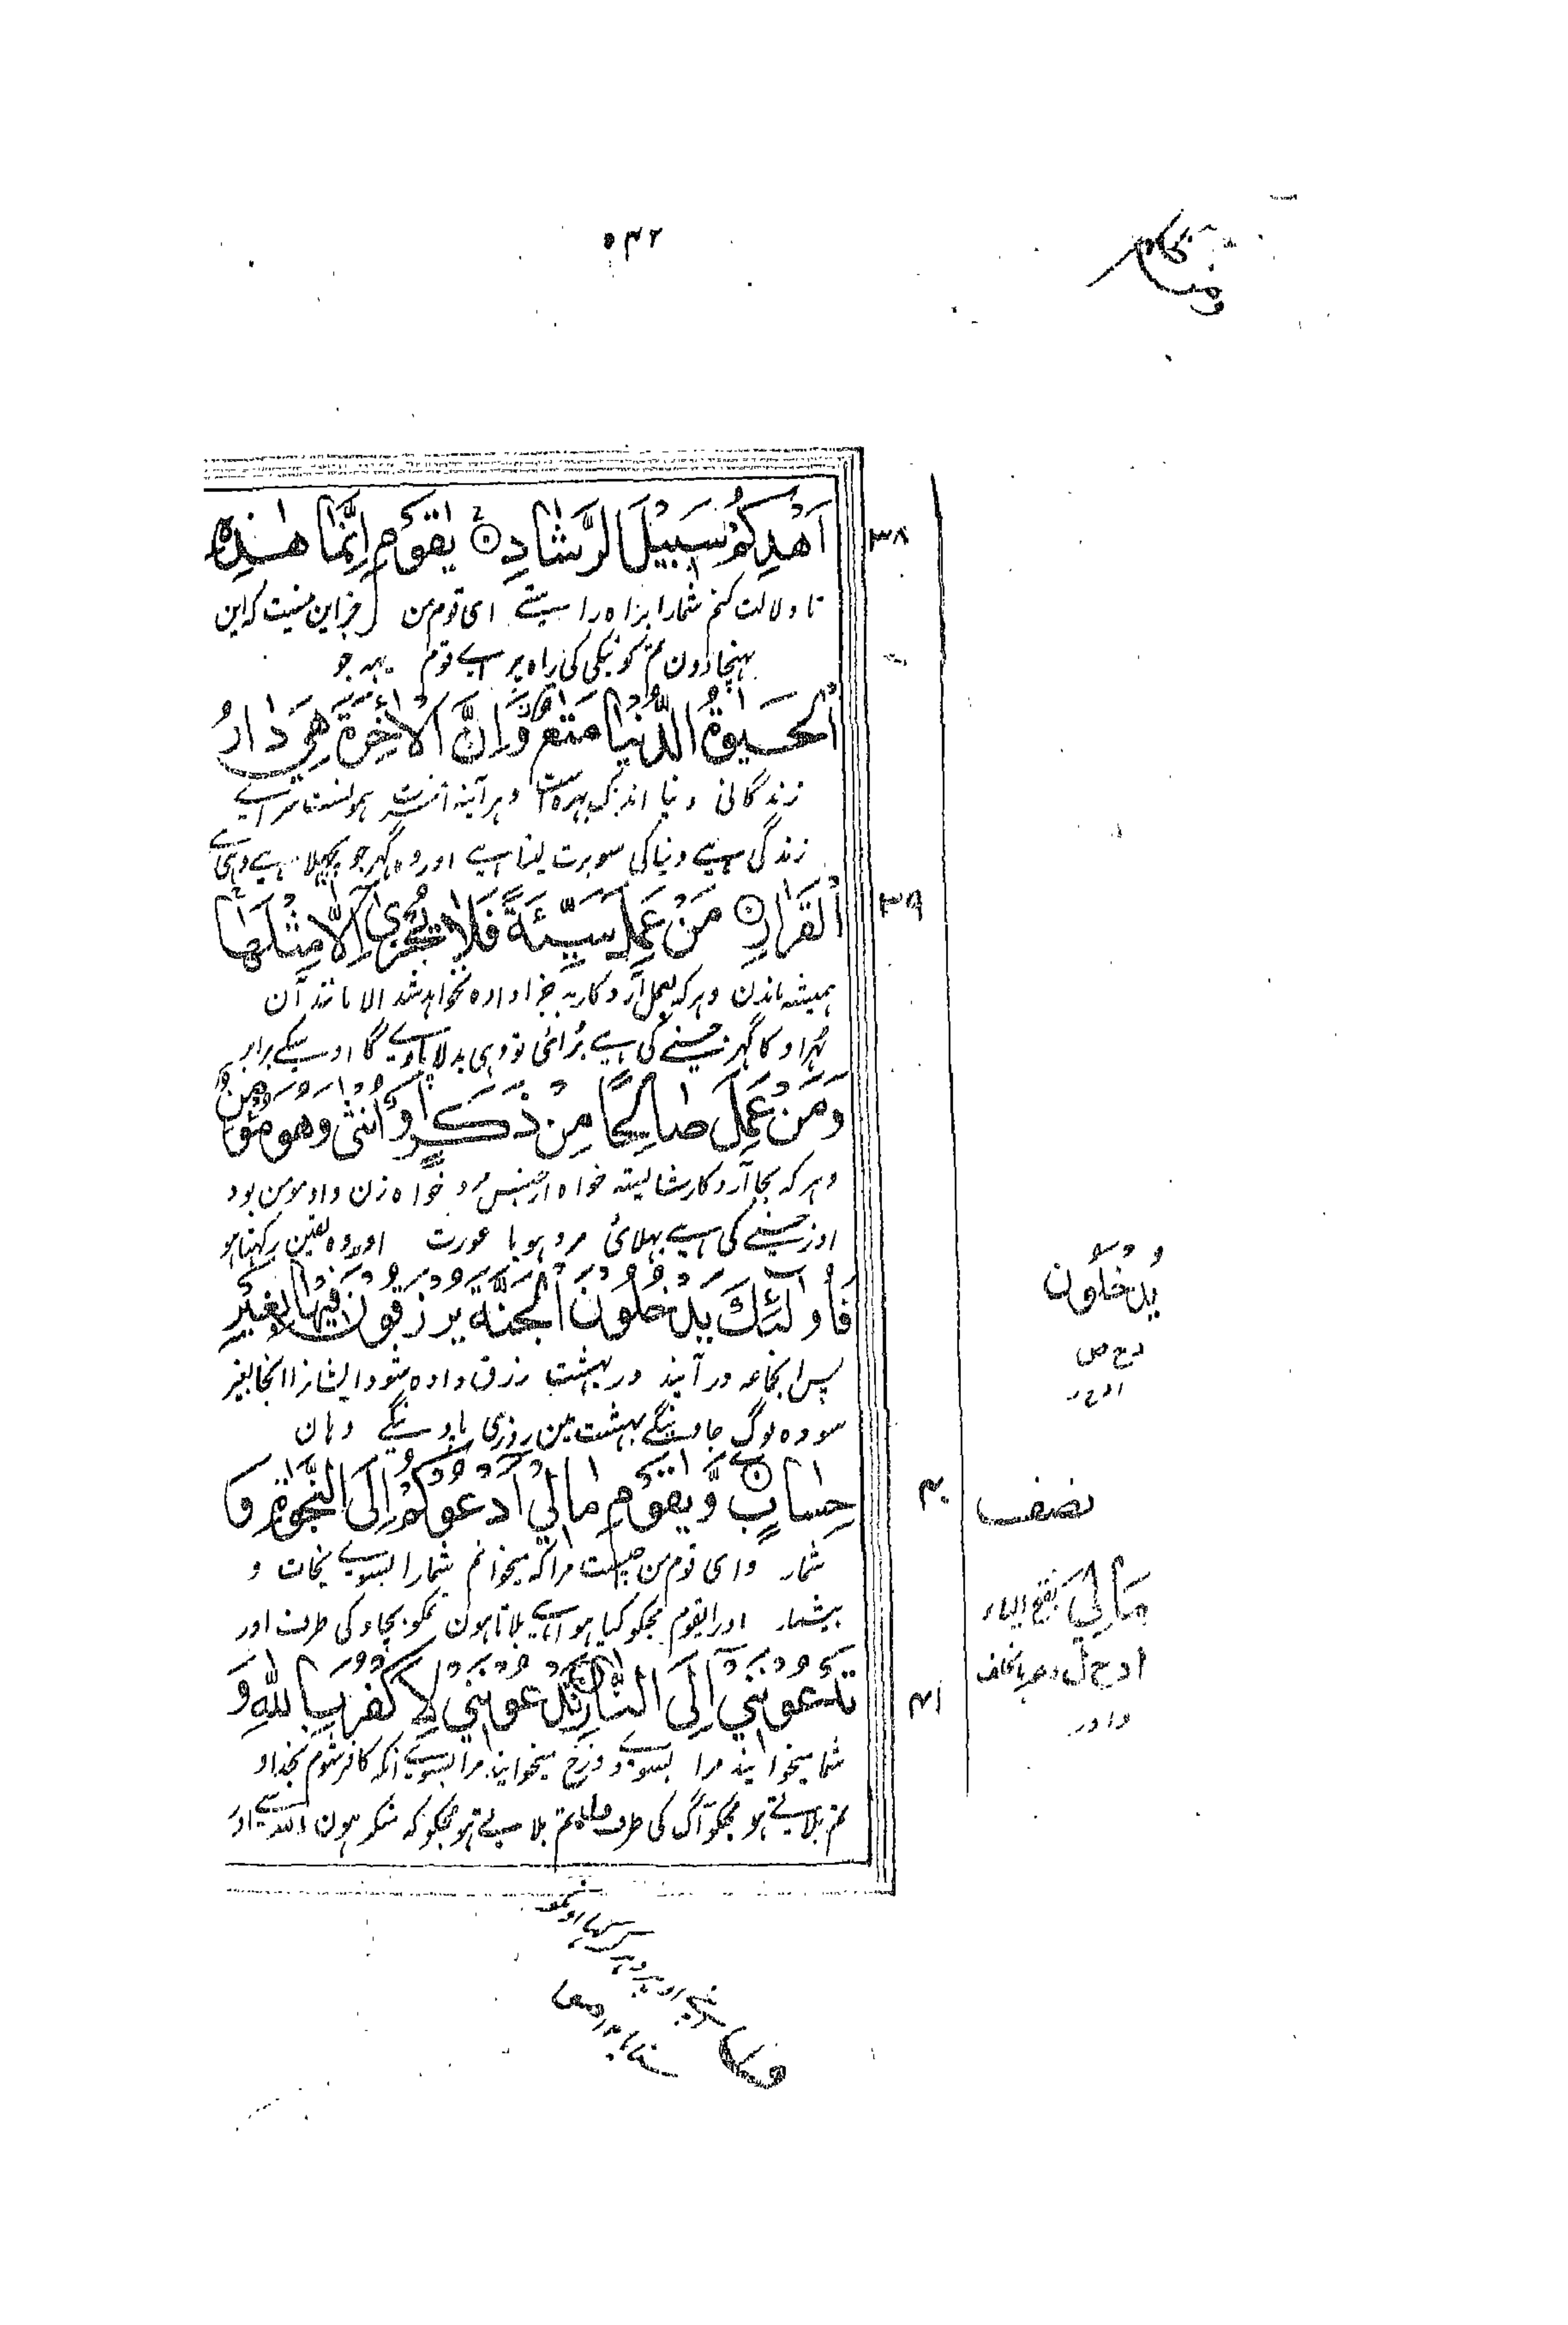 ۵۴۲
اَهْدِكُمْ سَبِيْلَ الرَّشَادِ ۝ يٰقَوْمِ اِنَّمَا هٰذِهِ
۳۸
تا دلالت کنم شمارا براه راستے ای قوم من جز این نیست که این
پہنچادون تمکو نیکی کی راه پر اے قوم یہہ جو
الْحَيٰوةُ الدُّنْيَا مَتَاعٌ وَّاِنَّ الْاٰخِرَةَ هِيَ دَارُ
زندگانی دنیا اندک بہره است و هر آینه آخرت همونست سراے
زندگی ہے دنیا کی سو برت لینا ہے اور وه گہر جو پچھلا ہے وہی ہے
الْقَرَارِ ۝ مَنْ عَمِلَ سَيِّئَةً فَلَا يُجْزٰى اِلَّا مِثْلَهَا
۳۹
همیشه ماندن و هر که بعمل آرد کار بد جزا داده نخواهد شد الا مانند آن
ٹہراو کا گہر جسنے کی ہے برائی تو وہی بدلا پاوے گا اوسیکے برابر
وَمَنْ عَمِلَ صَالِحًا مِّنْ ذَكَرٍ اَوْ اُنْثٰى وَهُوَ مُؤْمِنٌ
و هر که بجا آرد کار شایسته خواه از جنس مرد خواه زن و او مومن بود
اور جسنے کی ہے بہلائی مرد ہو یا عورت اور وه یقین رکہتا ہو
فَاُولٰٓئِكَ يَدْخُلُوْنَ الْجَنَّةَ يُرْزَقُوْنَ فِيْهَا بِغَيْرِ
يُدْخَلُون
پس انجماعه در آیند در بهشت رزق داده شود ایشانرا انجا بغیر
سو وه لوگ جاوینگے بہشت مین روزی پاوینگے وہان
حِسَابٍ ۝ وَيٰقَوْمِ مَا لِيْ اَدْعُوْكُمْ اِلَى النَّجٰوةِ وَ
۴۰
نصف
شمار و ای قوم من چیست مرا که میخوانم شمارا بسوے نجات و
بیشمار اور ایقوم مجکو کیا ہوا ہے بلاتا ہون تمکو بچاو کی طرف اور
مَالِيَ بفتح الیاء
تَدْعُوْنَنِيْٓ اِلَى النَّارِ تَدْعُوْنَنِيْ لِاَكْفُرَ بِاللّٰهِ وَ
۴۱
شما میخوانید مرا بسوے دوزخ میخوانید مرا بسوے آنکه کافر شوم بخدا و
تم بلاتے ہو مجکو آگ کی طرف تم بلاتے ہو مجکو که منکر ہون الله سے اور